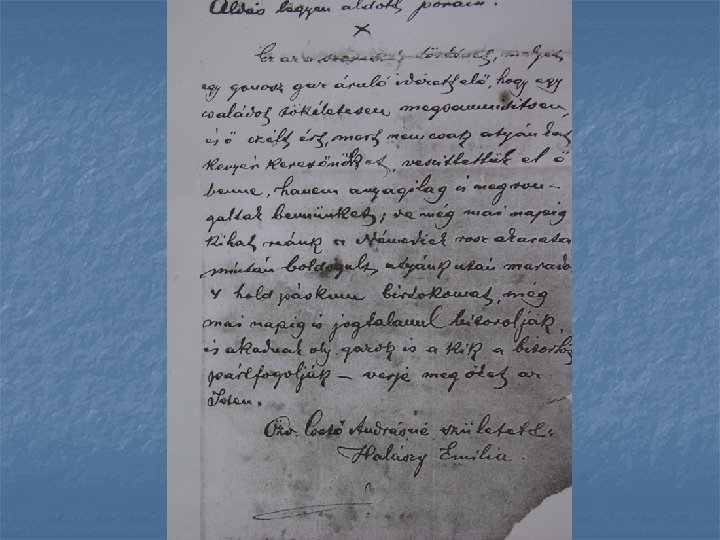 Áldás légyen áldott porain.
x
Ez az a szomorú történet, melyet
egy gonosz gaz áruló idézett elő, hogy egy
családot tökéletesen megsemmisítsen,
és ő célt ért, mert nemcsak atyánkat
kenyér keresőnöket, veszítettük el ő
benne, hanem anyagilag is megron-
gáltak bennünket; de még mai napig
kihat reánk a Németiek rosz akarata
miután boldogult atyánk után maradt
hold páskum birtokomat, még
mai napig is jogtalanul bitorolják,
és akadnak oly gazok is a kik a bitorlót
pártfogolják – verje meg őket az
Isten.
Özv. Andrásné született:
Halászy Emilia.